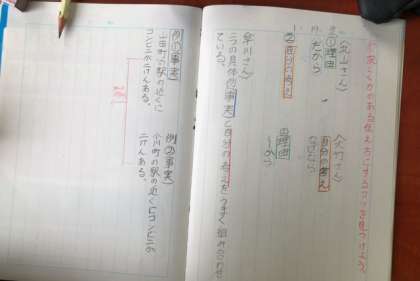 説とく力がある伝え方をするコツを見つけよう。
〈丸山さん〉
①理由
だから
②自分の考え
〈大竹さん〉
①自分の考え
なぜなら
②理由
〈早川さん〉
二つの具体例(事実)と自分の考えをうまく組み合わせ
ている。
例①(事実)
山田町の駅の近くに
コンビニが二けんある。
例②(事実)
小川町の駅の近くにコンビニが
二けんある。